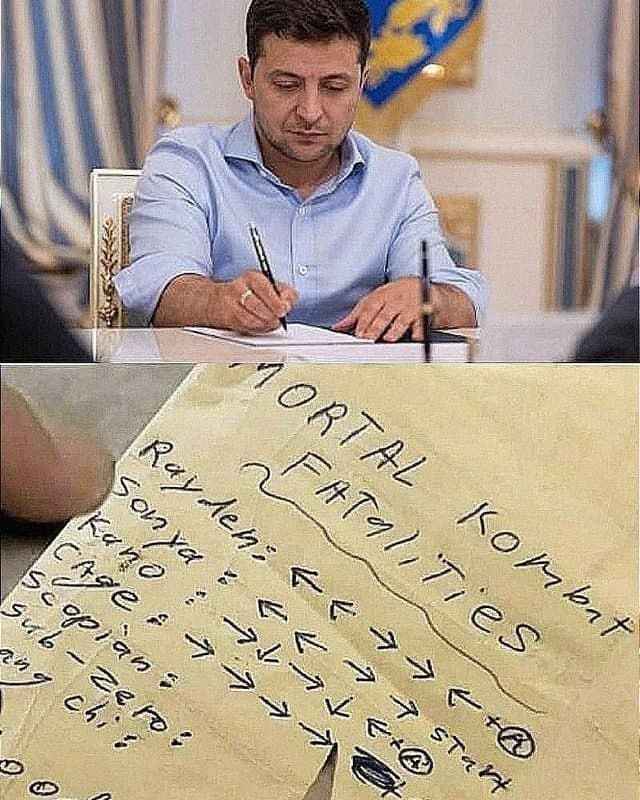 MORTAL Kombat
FATALiTiES
Rayden: ← ← → → ← +Ⓐ
Sonya: ← ← → → start
Kano: → ↓ → ↓ ← +Ⓐ
CAge: → → → →
Scopian:
Sub-Zero:
ang chi: